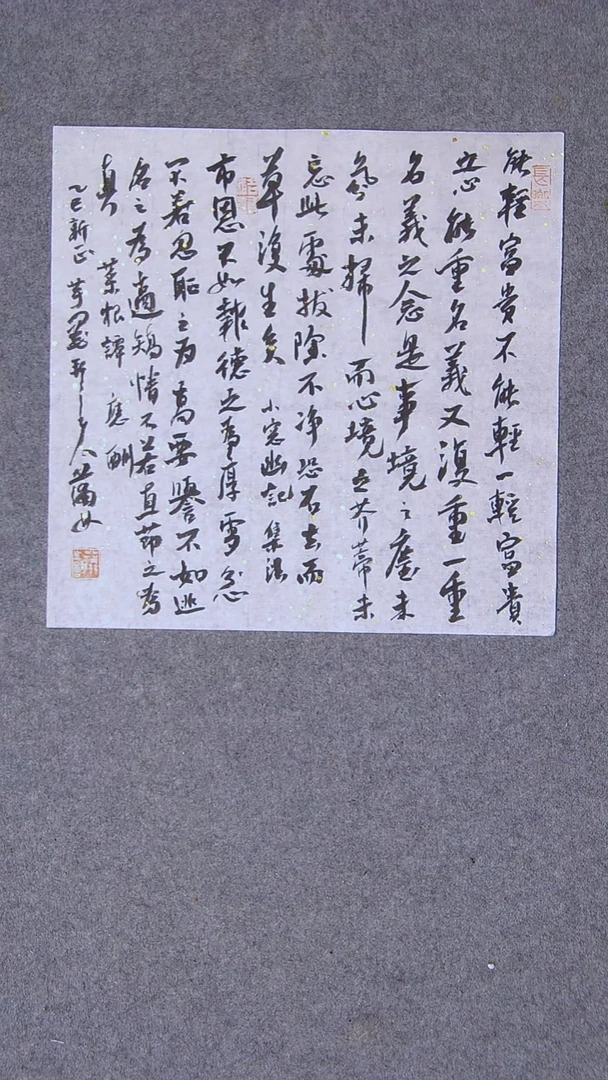 能輕富貴不能輕一輕富貴
之心能重名義又復重一重
名義之念是事境之塵未
氛未掃而心境之芥蒂未
忘此處拔除不净恐石去而
草復生矣 小窓幽記 集法
市恩不如報德之為厚雪忿
不若忍恥之为高要譽不如逃
名之為適矯情不若直節之為
真 菜根譚 應酬
乙巳新正